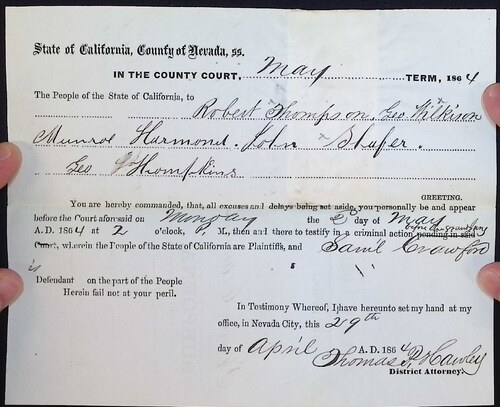 State of California, County of Nevada, ss.
IN THE COUNTY COURT, May TERM, 1864
The People of the State of California, to
Robert Thompson, Geo Wilkison
Munroe Harmond. John Shafer.
Geo Thompkins
GREETING.
You are hereby commanded, that, all excuses and delays being set aside, you personally be and appear
before the Court aforesaid on Monday the 2d day of May
A. D. 1864 at 2 o'clock, P. M., then and there to testify in a criminal action pending in said
before the Grand Jury
Court, wherein the People of the State of California are Plaintiffs, and Saml Crawford
is
Defendant on the part of the People
Herein fail not at your peril.
In Testimony Whereof, I have hereunto set my hand at my
office, in Nevada City, this 29th
day of April A. D. 1864
Thomas P. Hawley
District Attorney.